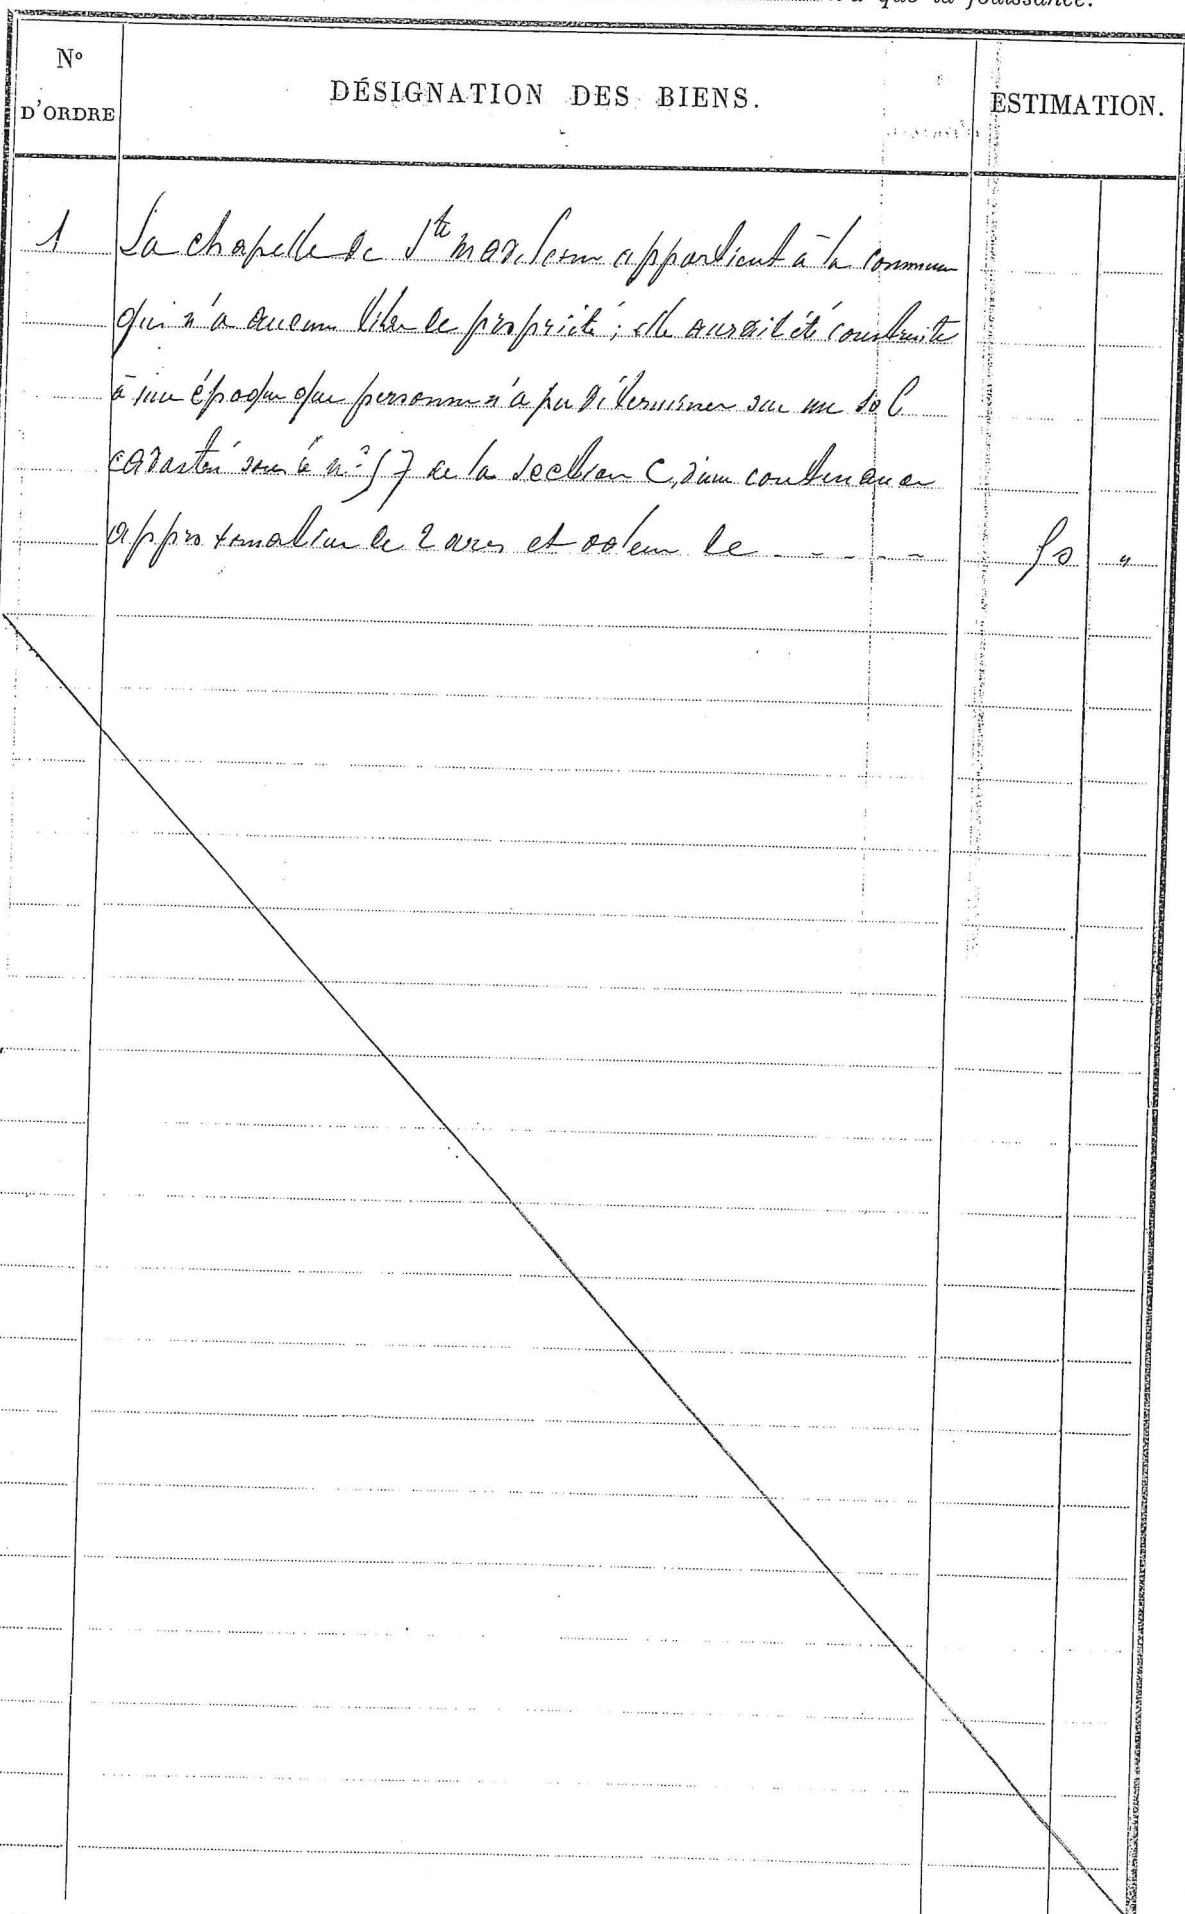 que la jouissance.
N° D'ORDRE
DÉSIGNATION DES BIENS.
ESTIMATION.
1 La chapelle de Ste appartient à la commune
qui n'a aucun titre de propriété ; elle aurait été construite
à une époque que personne n'a pu déterminer sur un sol
cadastré sous le n° 57 de la section C, d'une contenance
approximative de 2 ares et valeur de - - - - 50 "